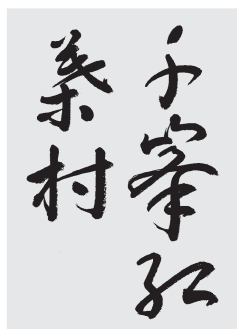 千峯紅
葉村